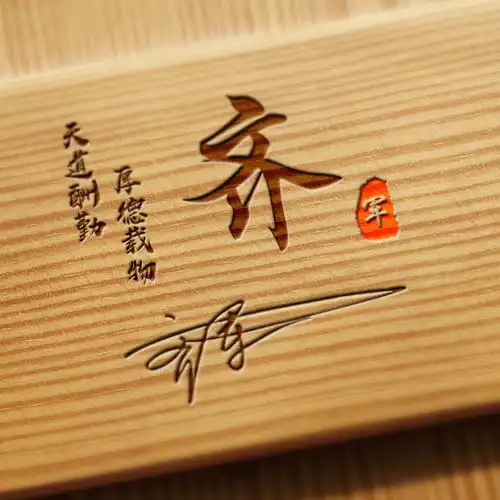 天道酬勤
厚德载物
齐
军
齐军